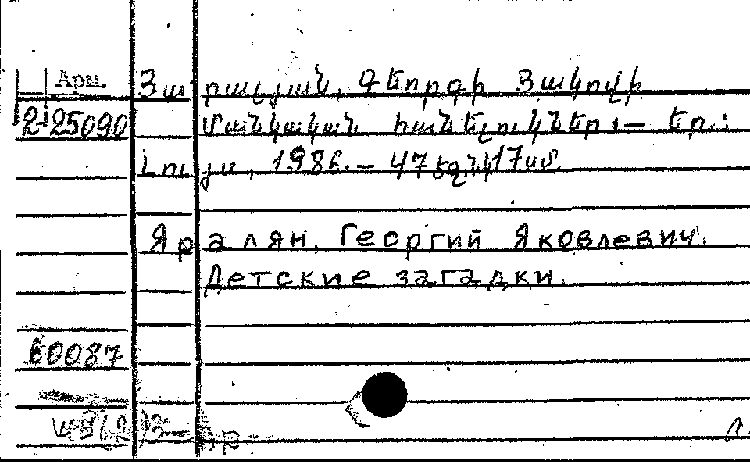 Арм. Յարալյան, Գեորգի Յակովի
2-25090 Մանկական հանելուկներ։ — Եր.:
Լույս, 1986. — 47 էջ, նկ. 17 սմ
Яралян, Георгий Яковлевич.
Детские загадки.
60087